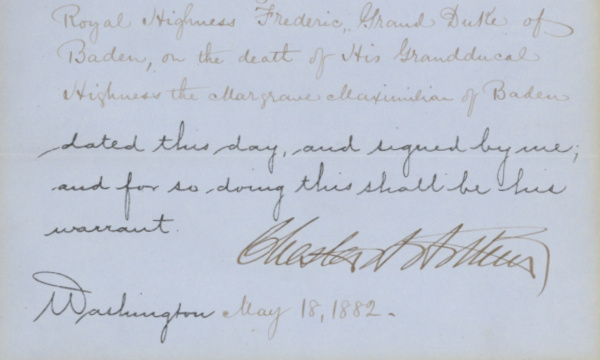 Royal Highness Frederic, Grand Duke of
Baden, on the death of His Grandducal
Highness the Margrave Maximilian of Baden
dated this day, and signed by me;
and for so doing this shall be his
warrant.
Chester A Arthur
Washington May 18, 1882.